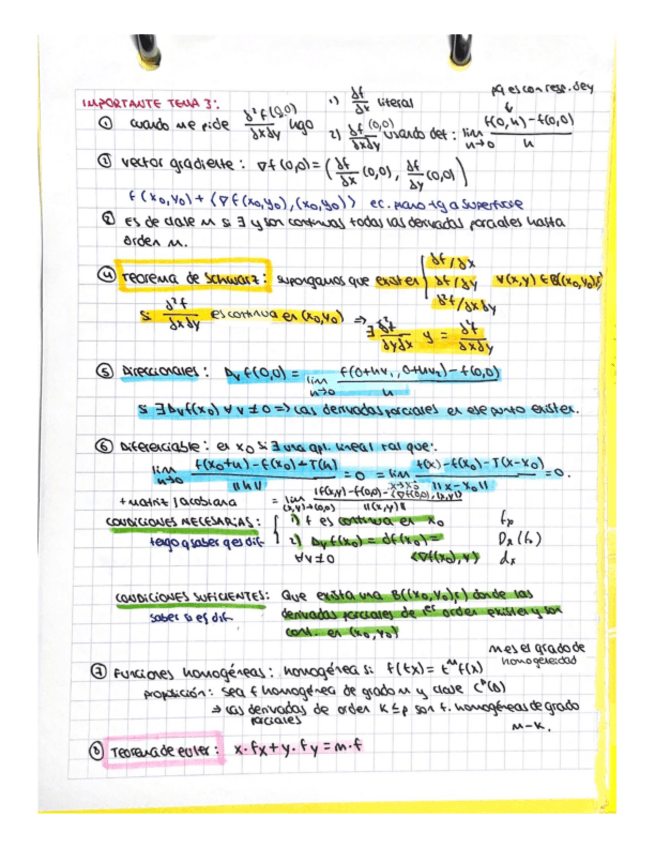 IMPORTANTE TEMA 3:
① cuando me pide ∂²f(0,0)/∂x∂y hago 1) ∂f/∂x literal
2) ∂f/∂x∂y (0,0) usando def: lim n→0 f(0,h)-f(0,0)/h
pq es con resp. de y
② vector gradiente: ∇f(0,0) = (∂f/∂x (0,0), ∂f/∂y (0,0))
f(x₀,y₀) + ⟨∇f(x₀,y₀), (x₀,y₀)⟩ ec. plano tg a superficie
③ Es de clase m si ∃ y son continuas todas las derivadas parciales hasta
orden m.
④ Teorema de Schwarz: supongamos que existen { ∂f/∂x ∂f/∂y ∂²f/∂x∂y ∀(x,y) ∈ B((x₀,y₀),r)
si ∂²f/∂x∂y es continua en (x₀,y₀) ⇒ ∃ ∂²f/∂y∂x y = ∂²f/∂x∂y
⑤ Direccionales: Dᵥf(0,0) = lim h→0 f(0+hv₁, 0+hv₂)-f(0,0)/h
si ∃ Dᵥf(x₀) ∀ v≠0 => las derivadas parciales en ese punto existen.
⑥ Diferenciable: en x₀ si ∃ una apl. lineal tal que:
lim h→0 f(x₀+h)-f(x₀)+T(h)/||h|| = 0 = lim x→x₀ f(x)-f(x₀)-T(x-x₀)/||x-x₀|| = 0.
+ matriz jacobiana = lim (x,y)→(0,0) |f(x,y)-f(0,0)-⟨∇f(0,0),(x,y)⟩|/||(x,y)||
CONDICIONES NECESARIAS: { 1) f es continua en x₀ fₓ
tengo q saber q es dif. 2) Dᵥf(x₀) = df(x₀) = Dₓ(f)
∀v≠0 ⟨∇f(x₀),v⟩ dₓ
CONDICIONES SUFICIENTES: Que exista una B((x₀,y₀),r) donde las
saber si es dif. derivadas parciales de 1er orden existen y son
cont. en (x₀,y₀)
m es el grado de
homogeneidad
⑦ Funciones homogéneas: homogénea si f(tx) = tᵐf(x)
proposición: sea f homogénea de grado m y clase Cᵖ(A)
⇒ las derivadas de orden K≤p son f. homogéneas de grado
parciales m-K.
⑧ Teorema de euler: x·fx + y·fy = m·f